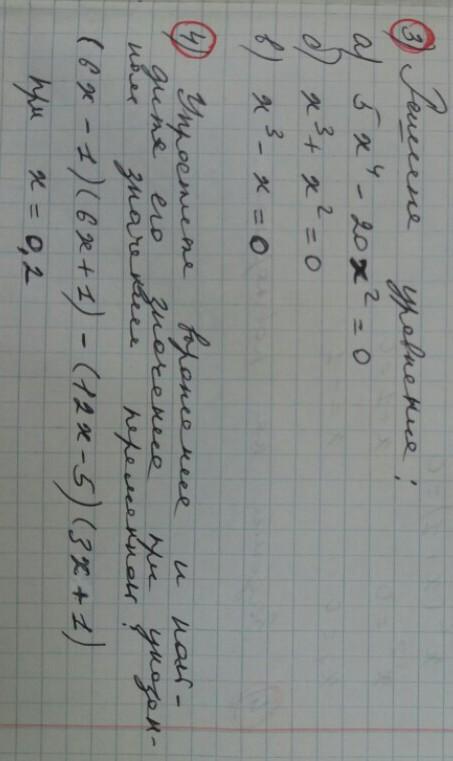 3) Решите уравнение:
а) 5x⁴ - 20x² = 0
б) x³ + x² = 0
в) x³ - x = 0
4) Упростите выражение и най-
дите его значение при указан-
ном значении переменной:
(6x - 1)(6x + 1) - (12x - 5)(3x + 1)
при x = 0,2